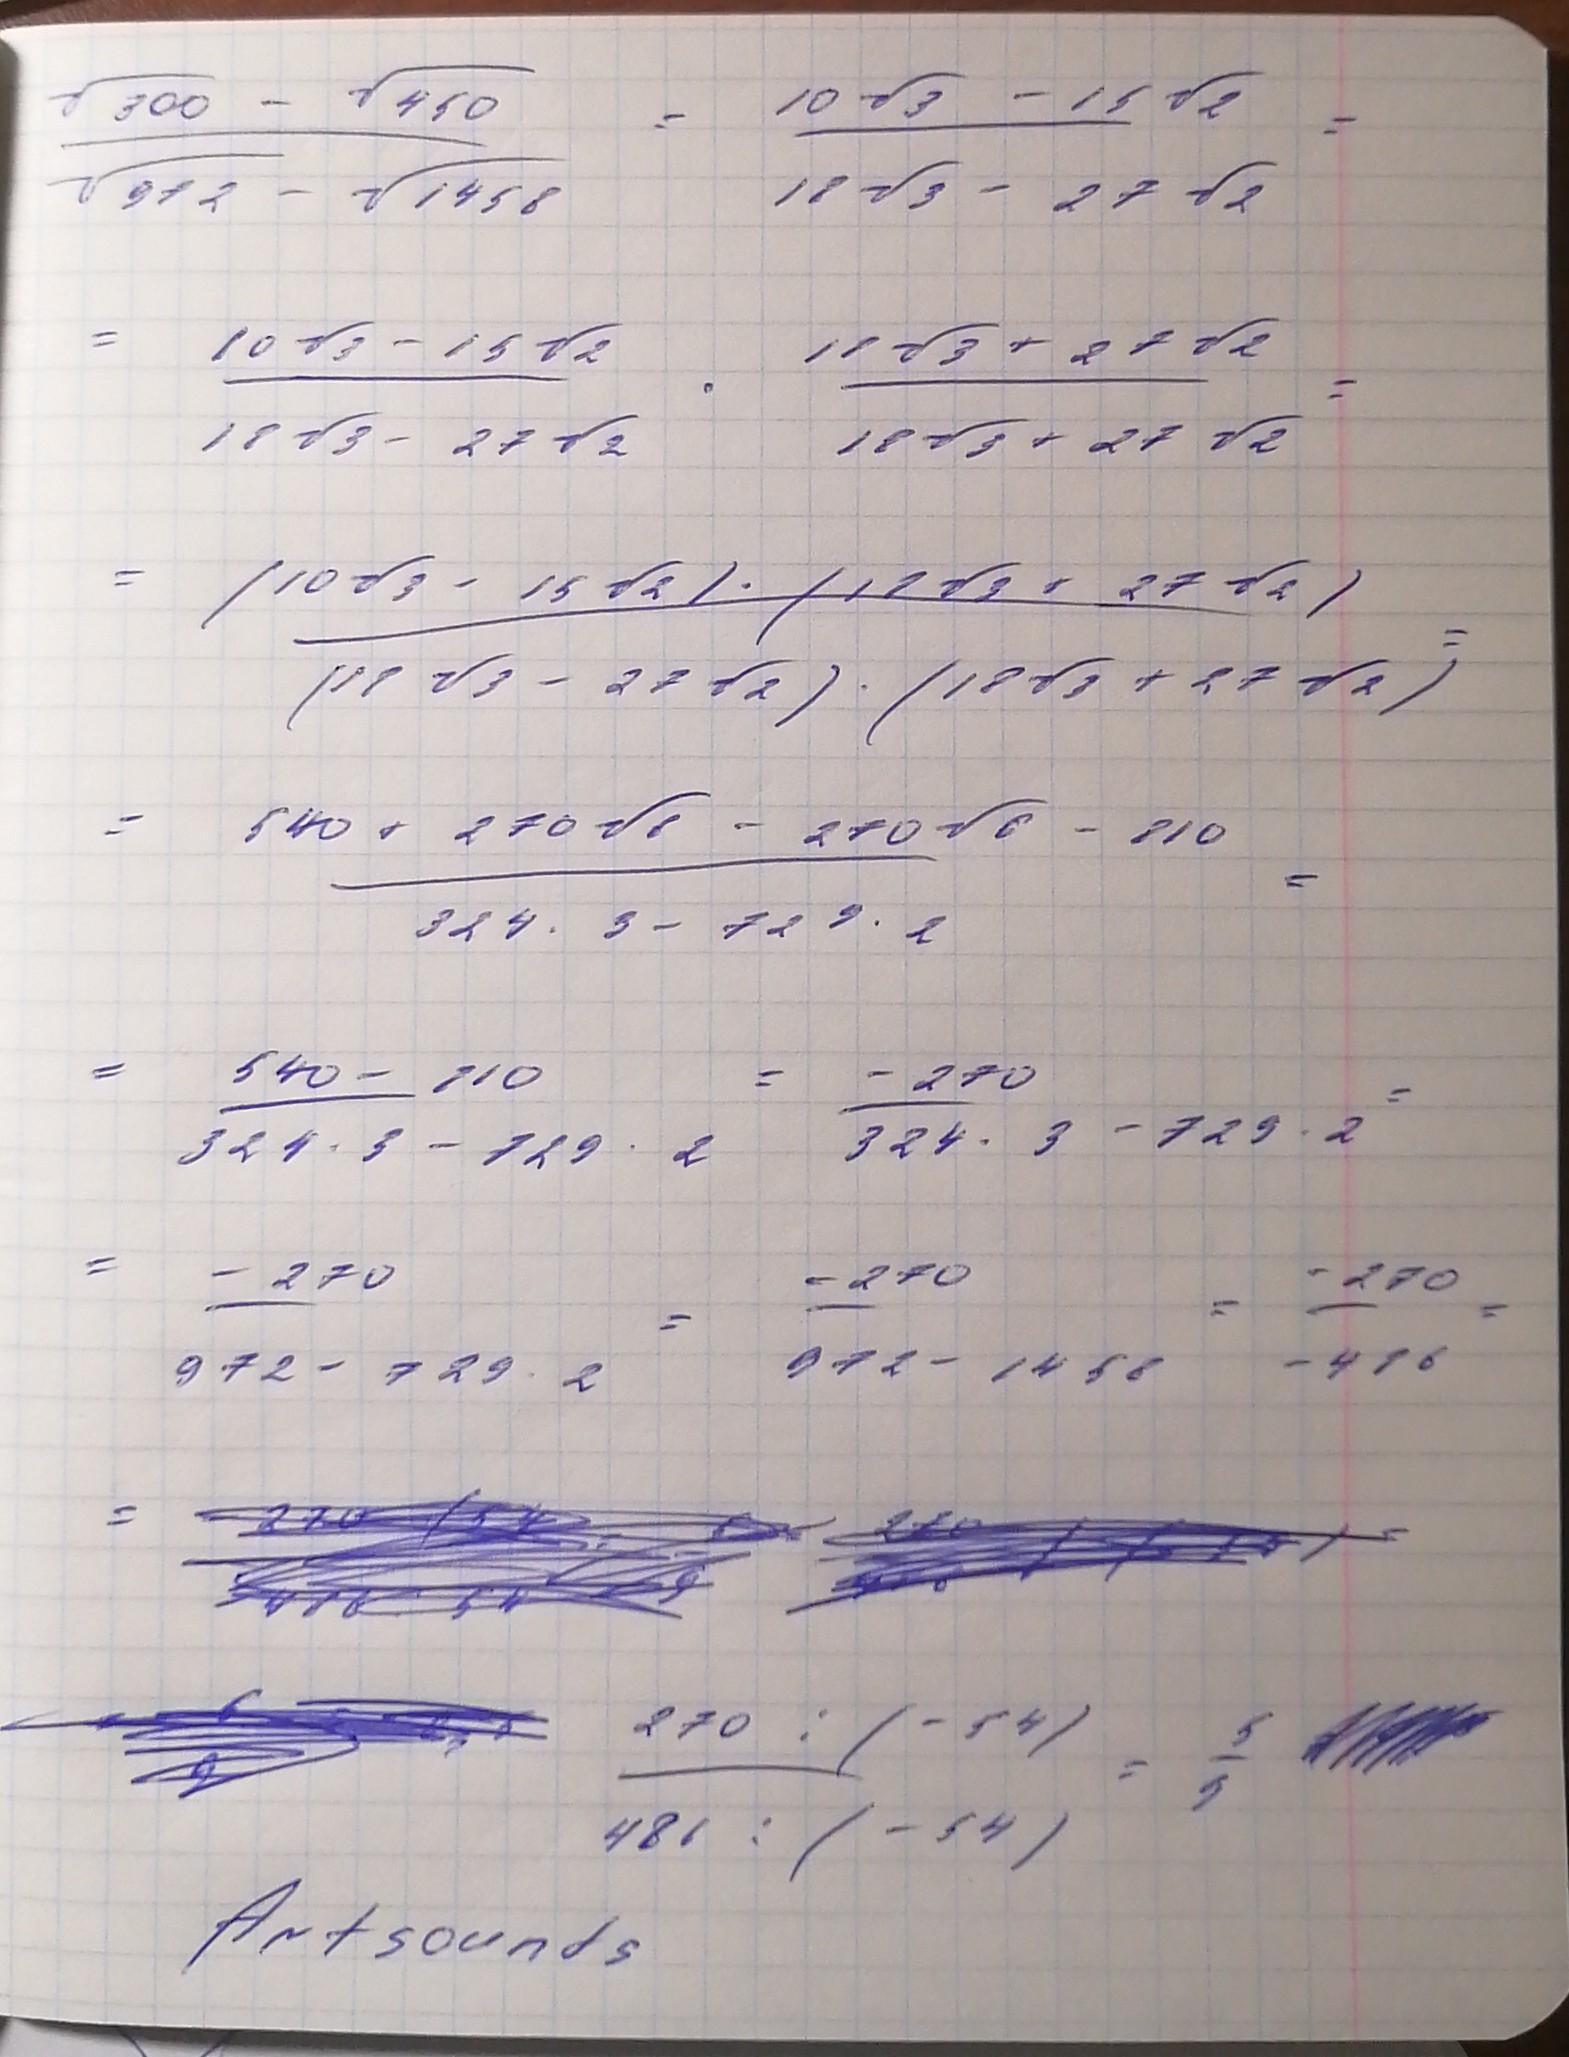 √300 - √450 / √972 - √1458 = 10√3 - 15√2 / 18√3 - 27√2 =
= 10√3 - 15√2 / 18√3 - 27√2 · 18√3 + 27√2 / 18√3 + 27√2 =
= (10√3 - 15√2) · (18√3 + 27√2) / (18√3 - 27√2) · (18√3 + 27√2) =
= 540 + 270√6 - 270√6 - 810 / 324 · 3 - 729 · 2 =
= 540 - 810 / 324 · 3 - 729 · 2 = -270 / 324 · 3 - 729 · 2 =
= -270 / 972 - 729 · 2 = -270 / 972 - 1458 = -270 / -486 =
=
270 : (-54) / 486 : (-54) = 5 / 9
Artsounds